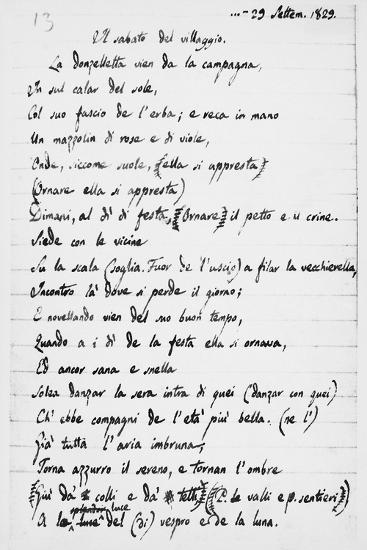 13
...- 29 Settem. 1829.
Il sabato del villaggio.
La donzelletta vien da la campagna,
In sul calar del sole,
Col suo fascio de l'erba; e reca in mano
Un mazzolin di rose e di viole,
Onde, siccome suole, (ella si appresta)
(Ornare ella si appresta)
Dimani, al dì di festa, (Ornare) il petto e il crine.
Siede con le vicine
Su la scala (soglia. Fuor de l'uscio) a filar la vecchierella,
Incontro là dove si perde il giorno;
E novellando vien del suo buon tempo,
Quando a i dì de la festa ella si ornava,
Ed ancor sana e snella
Solea danzar la sera intra di quei (danzar con quei)
Ch'ebbe compagni de l'età più bella. (ne l')
Già tutta l'aria imbruna,
Torna azzurro il sereno, e tornan l'ombre
(Giù da colli e da tetti,) (P. le valli e p. sentieri)
A la luce del (di) vespro e de la luna.